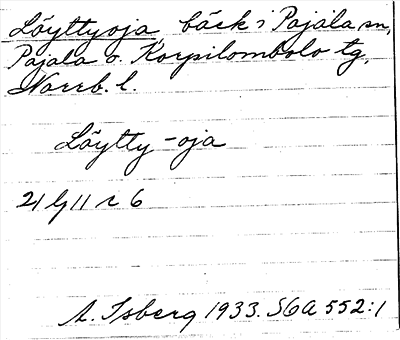 Löyttyoja, bäck i Pajala sn,
Pajala o. Korpilombolo tg,
Norrb. l.
Löytty-oja
21 lj 11 r 6
A. Isberg 1933. SGA 552:1